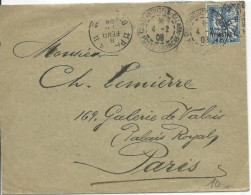 4 -2
08
Monsieur
Ch. Lemierre
169, Galerie de Valois
(Palais Royal)
Paris
10